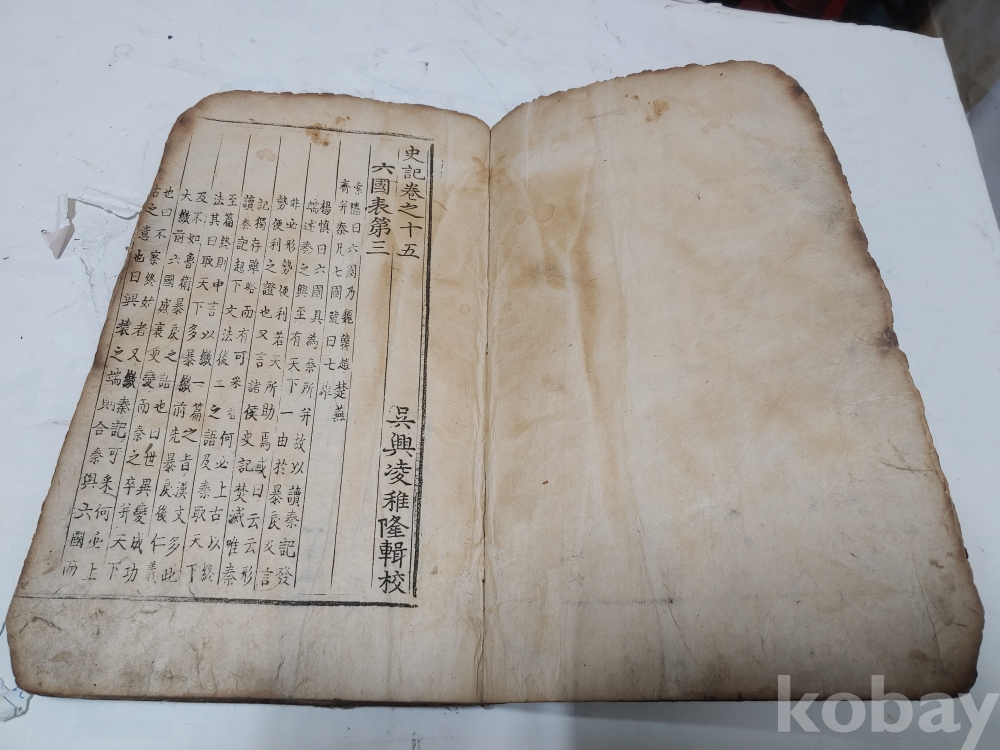 史記卷之十五
吳興凌稚隆輯校
六國表第三
索隱曰六國乃魏韓趙楚燕
齊并秦凡七國號曰七
楊慎曰六國具為秦所并故以讀秦記發
端述秦之興至有天下一由於暴戾及言
非必形勢便利若天所助焉或曰云云形
勢便利之證也又言諸侯史記焚滅唯秦
記獨存雖略而有可采
讀秦記起下文法後王之語及秦取天下
至篇終則申言何必上古以終
法其曰取天下多暴繳一篇之旨漢文多此
及不如魯衛暴戾繳前先暴戾後仁義
大繳前六國盛衰更變也曰世異變成功
也曰不察終始者又繳秦之卒并天下
古之意也曰興壞之端則合秦與六國而
kobay